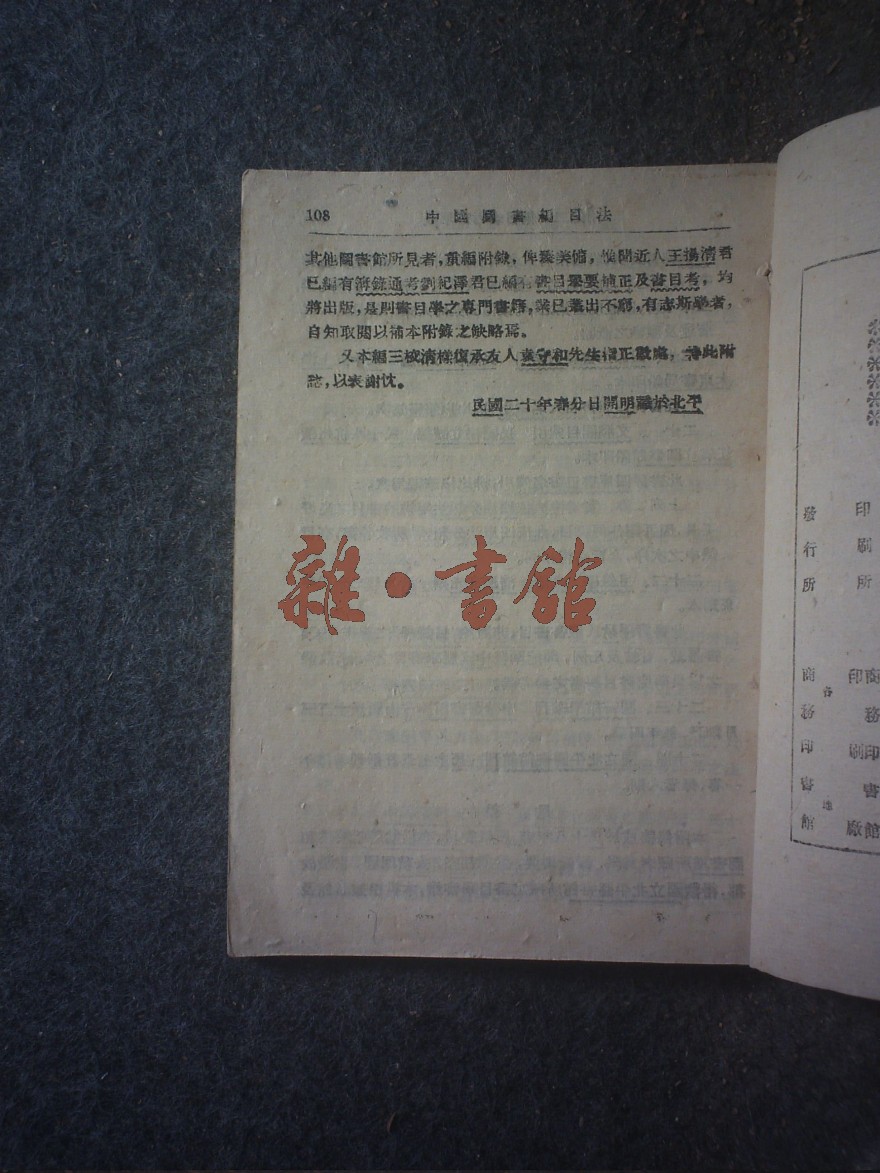 108 中國圖書編目法
其他圖書館所見者，重編附錄，俾臻美備，惟聞近人王揚濱君
已編有簿錄通考劉紀澤君已編有書目舉要補正及書目考，均
將出版，是則書目學之專門書籍，業已叢出不窮，有志斯學者，
自知取閱以補本附錄之缺略焉。
又本編三校清樣復承友人袁守和先生指正數處，特此附
誌，以表謝忱。
民國二十年春分日開明識於北平
雜·書館
發行所
商務印書館
各
地
印刷所
商務印書館
印刷廠